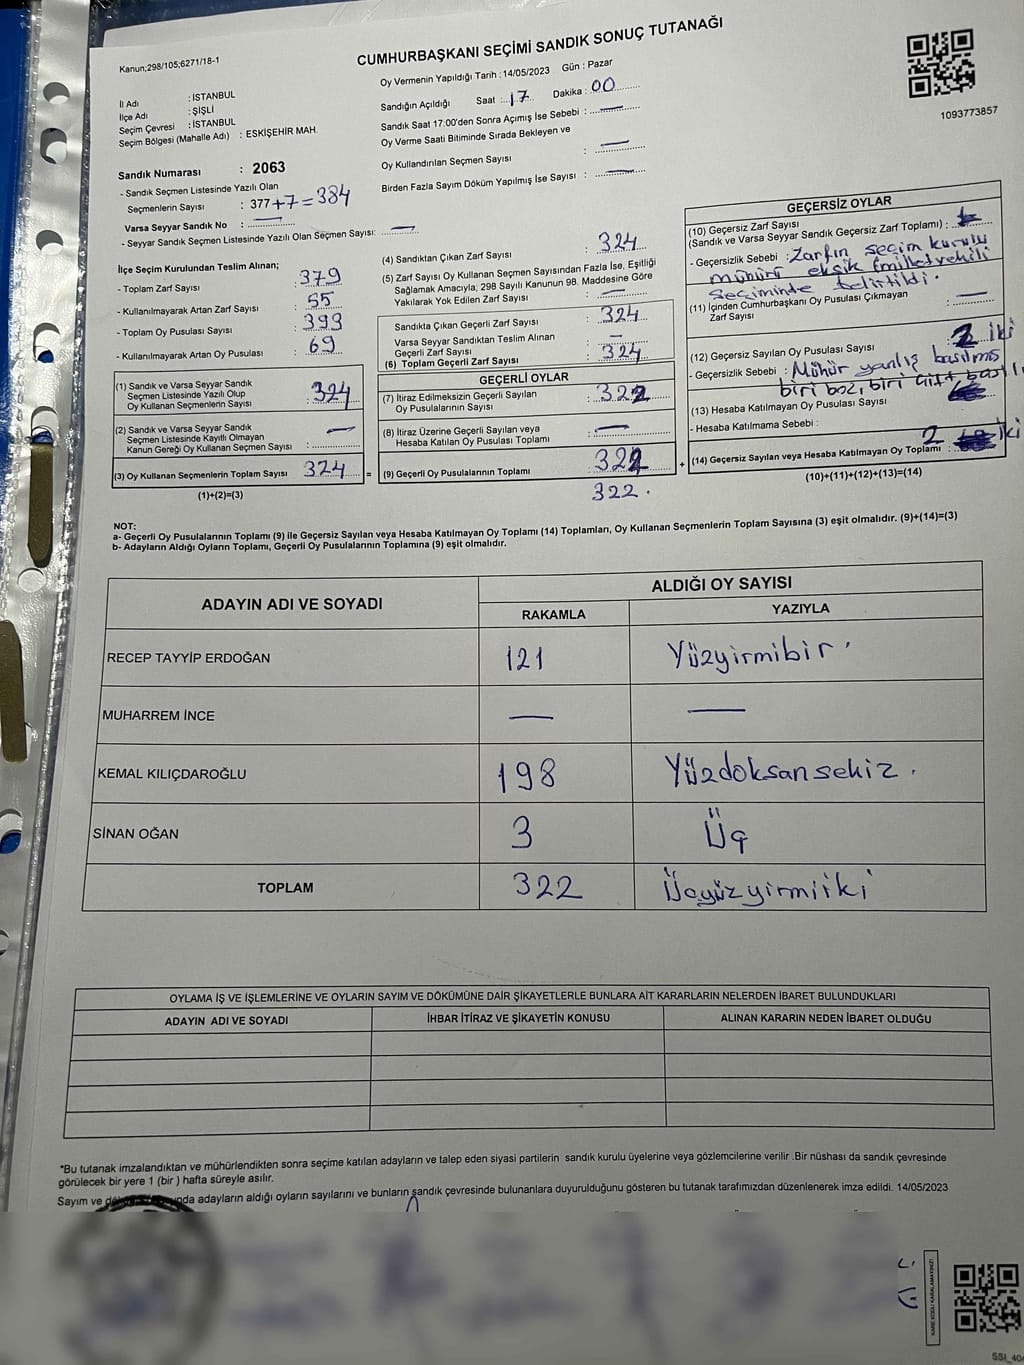 CUMHURBAŞKANI SEÇİMİ SANDIK SONUÇ TUTANAĞI
Kanun;298/105;6271/18-1
Oy Vermenin Yapıldığı Tarih : 14/05/2023 Gün : Pazar
1093773857
İl Adı : İSTANBUL
İlçe Adı : ŞİŞLİ
Seçim Çevresi : İSTANBUL
Seçim Bölgesi (Mahalle Adı) : ESKİŞEHİR MAH.
Sandığın Açıldığı Saat : 17 Dakika : 00
Sandık Saat 17:00'den Sonra Açımış İse Sebebi : —
Oy Verme Saati Bitiminde Sırada Bekleyen ve
Oy Kullandırılan Seçmen Sayısı : —
Birden Fazla Sayım Döküm Yapılmış İse Sayısı : —
Sandık Numarası : 2063
- Sandık Seçmen Listesinde Yazılı Olan
Seçmenlerin Sayısı : 377 +7 = 384
Varsa Seyyar Sandık No : —
- Seyyar Sandık Seçmen Listesinde Yazılı Olan Seçmen Sayısı: —
İlçe Seçim Kurulundan Teslim Alınan;
- Toplam Zarf Sayısı : 379
- Kullanılmayarak Artan Zarf Sayısı : 55
- Toplam Oy Pusulası Sayısı : 393
- Kullanılmayarak Artan Oy Pusulası : 69
(1) Sandık ve Varsa Seyyar Sandık
Seçmen Listesinde Yazılı Olup
Oy Kullanan Seçmenlerin Sayısı : 324
(2) Sandık ve Varsa Seyyar Sandık
Seçmen Listesinde Kayıtlı Olmayan
Kanun Gereği Oy Kullanan Seçmen Sayısı : —
(3) Oy Kullanan Seçmenlerin Toplam Sayısı 324 =
(1)+(2)=(3)
(4) Sandıktan Çıkan Zarf Sayısı : 324
(5) Zarf Sayısı Oy Kullanan Seçmen Sayısından Fazla İse, Eşitliği
Sağlamak Amacıyla; 298 Sayılı Kanunun 98. Maddesine Göre
Yakılarak Yok Edilen Zarf Sayısı : —
Sandıkta Çıkan Geçerli Zarf Sayısı : 324
Varsa Seyyar Sandıktan Teslim Alınan
Geçerli Zarf Sayısı : —
(6) Toplam Geçerli Zarf Sayısı : 324
GEÇERLİ OYLAR
(7) İtiraz Edilmeksizin Geçerli Sayılan
Oy Pusulalarının Sayısı : 322
(8) İtiraz Üzerine Geçerli Sayılan veya
Hesaba Katılan Oy Pusulası Toplamı : —
(9) Geçerli Oy Pusulalarının Toplamı : 322 +
322.
GEÇERSİZ OYLAR
(10) Geçersiz Zarf Sayısı
(Sandık ve Varsa Seyyar Sandık Geçersiz Zarf Toplamı) :
- Geçersizlik Sebebi : Zarfın seçim kurulu
mührü eksik (milletvekili
seçiminde belirtildi.
(11) İçinden Cumhurbaşkanı Oy Pusulası Çıkmayan
Zarf Sayısı : —
(12) Geçersiz Sayılan Oy Pusulası Sayısı : 2 iki
- Geçersizlik Sebebi : Mühür yanlış basılmış
biri boz, biri çift
(13) Hesaba Katılmayan Oy Pusulası Sayısı :
- Hesaba Katılmama Sebebi :
(14) Geçersiz Sayılan veya Hesaba Katılmayan Oy Toplamı : 2 iki
(10)+(11)+(12)+(13)=(14)
NOT:
a- Geçerli Oy Pusulalarının Toplamı (9) ile Geçersiz Sayılan veya Hesaba Katılmayan Oy Toplamı (14) Toplamları, Oy Kullanan Seçmenlerin Toplam Sayısına (3) eşit olmalıdır. (9)+(14)=(3)
b- Adayların Aldığı Oyların Toplamı, Geçerli Oy Pusulalarının Toplamına (9) eşit olmalıdır.
ADAYIN ADI VE SOYADI ALDIĞI OY SAYISI
RAKAMLA YAZIYLA
RECEP TAYYİP ERDOĞAN 121 Yüzyirmibir.
MUHARREM İNCE — —
KEMAL KILIÇDAROĞLU 198 Yüzdoksansekiz.
SİNAN OĞAN 3 Üç
TOPLAM 322 Üçyüzyirmiiki
OYLAMA İŞ VE İŞLEMLERİNE VE OYLARIN SAYIM VE DÖKÜMÜNE DAİR ŞİKAYETLERLE BUNLARA AİT KARARLARIN NELERDEN İBARET BULUNDUKLARI
ADAYIN ADI VE SOYADI İHBAR İTİRAZ VE ŞİKAYETİN KONUSU ALINAN KARARIN NEDEN İBARET OLDUĞU
*Bu tutanak imzalandıktan ve mühürlendikten sonra seçime katılan adayların ve talep eden siyasi partilerin sandık kurulu üyelerine veya gözlemcilerine verilir .Bir nüshası da sandık çevresinde
görülecek bir yere 1 (bir ) hafta süreyle asılır.
Sayım ve adayların aldığı oyların sayılarını ve bunların sandık çevresinde bulunanlara duyurulduğunu gösteren bu tutanak tarafımızdan düzenlenerek imza edildi. 14/05/2023
KARE KODU KARALAMAYINIZ!